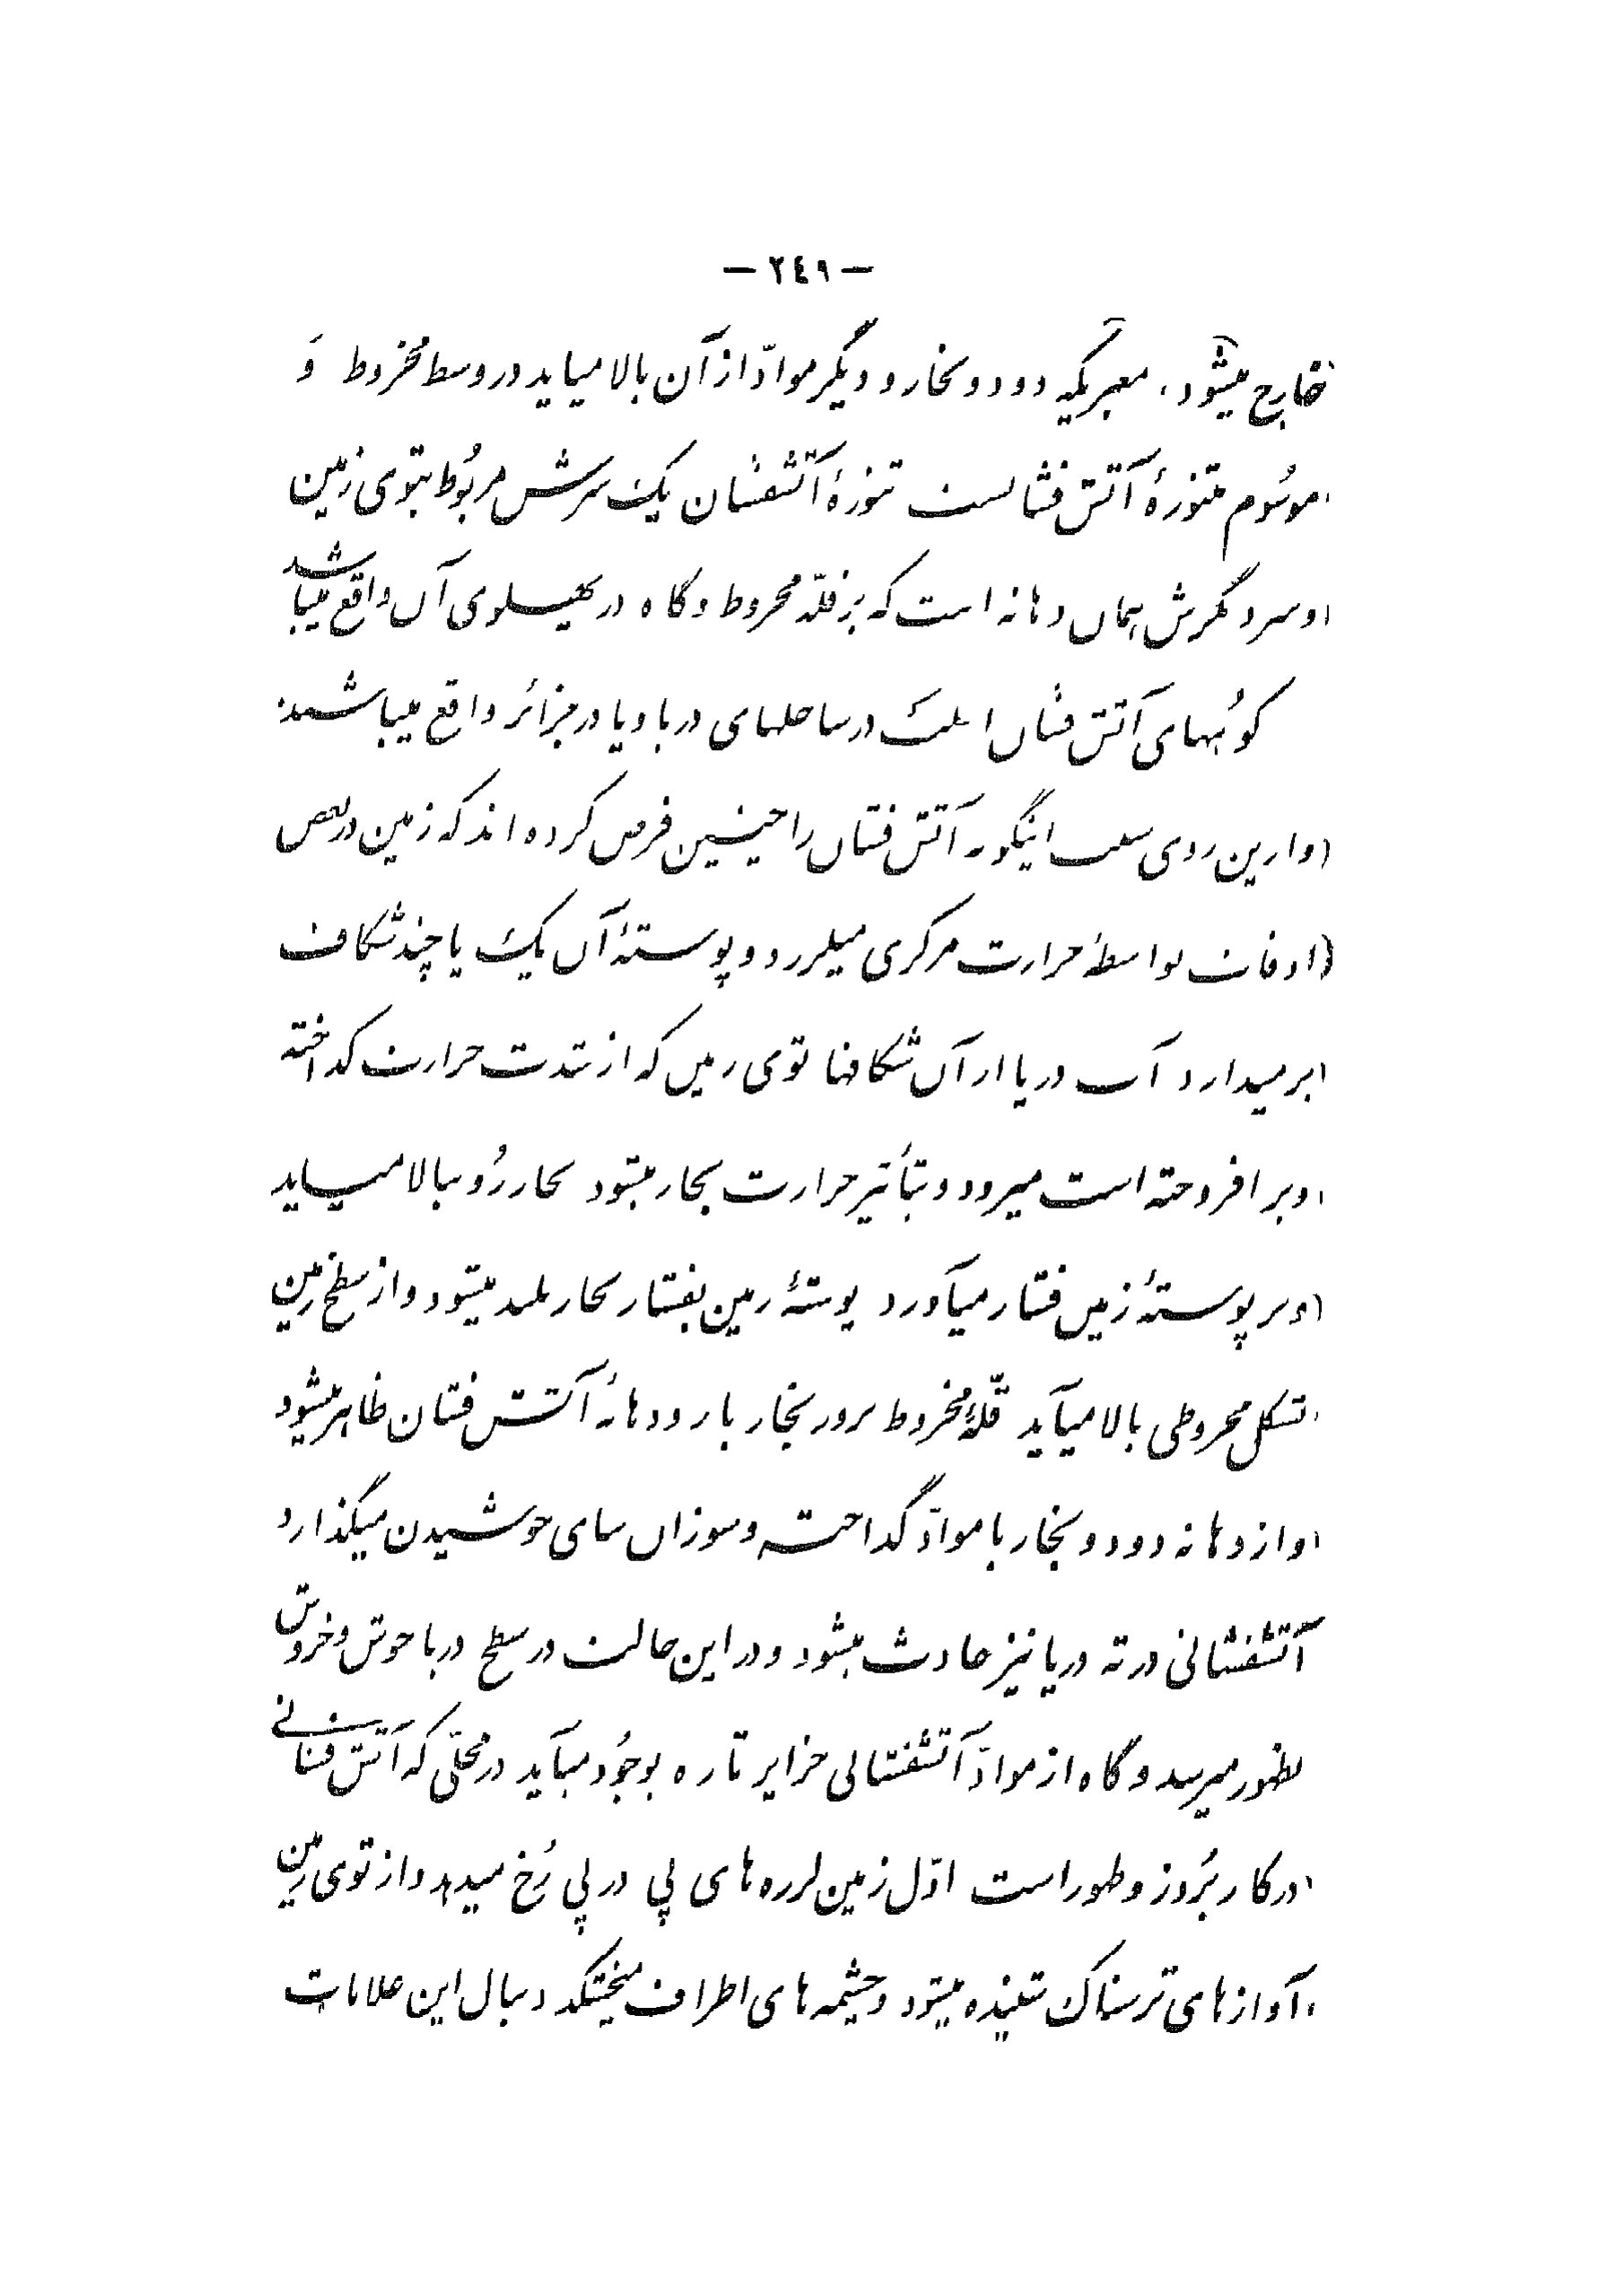 — ۲٤۹ —
خارج میشود، معبریکه دود و بخار و دیگر موادّ از آن بالا میاید در وسط مخروط وَ
موسُوم بتنورهٔ آتش فشانست تنورهٔ آتشفشان یک سرش مربُوط بتوی زمین
و سر دیگرش همان دهانه است که بر قلّهٔ مخروط و گاه در پهلوی آن واقع میباشد
کوُههای آتش فشان اغلب در ساحلهای دریا و یا در جزائر واقع میباشند
و ازین روی سبب اینگونه آتش فشان را چنین فرض کرده اند که زمین در بعض
اوقات بواسطهٔ حرارت مرکزی میلرزد و پوستهٔ آن یک یا چند شکاف
بر میدارد آب دریا از آن شکافها توی زمین که از شدت حرارت گداخته
و بر افروخته است میرود و بتأثیر حرارت بخار میشود بخار رُو ببالا میاید
و بر پوستهٔ زمین فشار میآورد پوستهٔ زمین بفشار بخار بلند میشود و از سطح زمین
بشکل مخروطی بالا میآید قلّهٔ مخروط بزور بخار باز و دهانهٔ آتش فشان ظاهر میشود
و از دهانه دود و بخار با موادّ گداخته و سوزان بنای جوشیدن میگذارد
آتشفشانی در ته دریا نیز حادث میشود و در این حالت در سطح دریا جوش و خروش
بظهور میرسد و گاه از موادّ آتشفشانی جزایر تازه بوجُود میآید در محلّی که آتش فشانی
در کار بُروز و ظهور است اوّل زمین لرزه های پی در پی رُخ میدهد و از توی زمین
آوازهای ترسناک شنیده میشود و چشمه های اطراف میخشکد دنبال این علامات